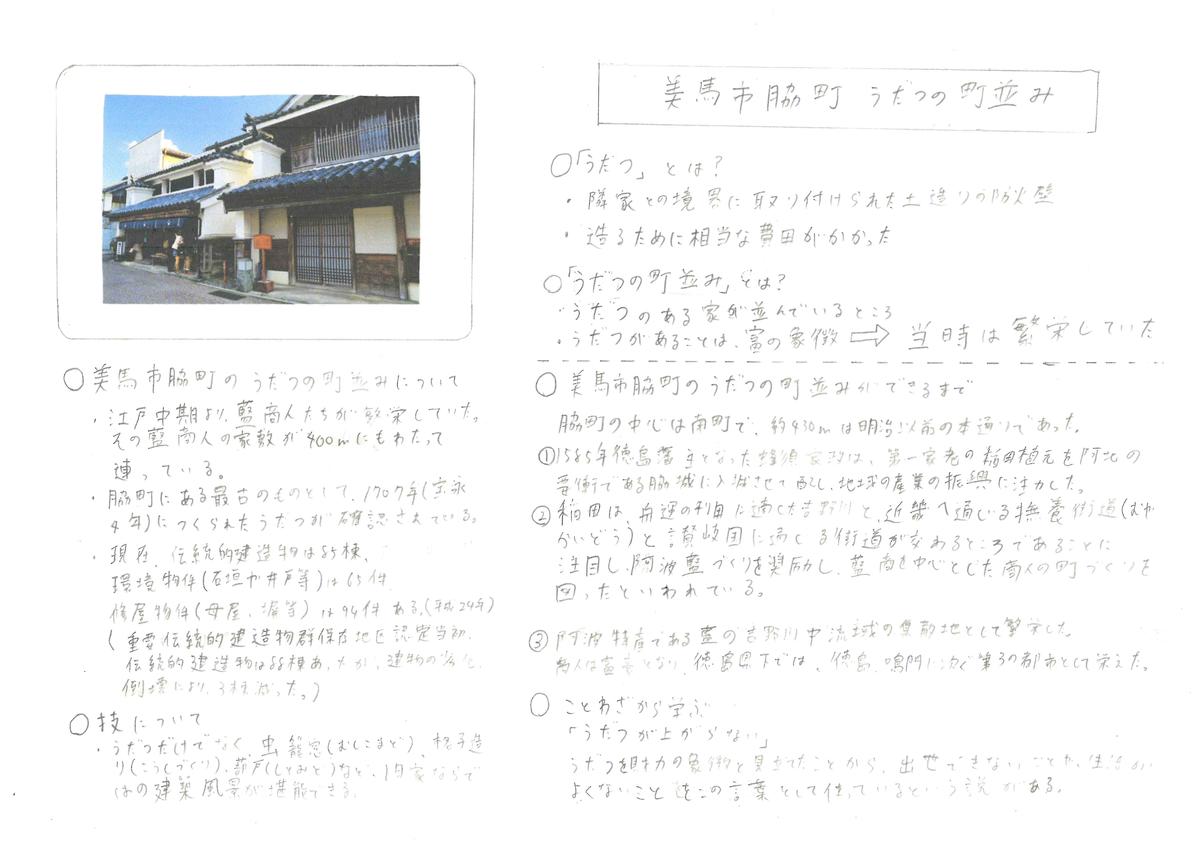 美馬市脇町 うだつの町並み
○「うだつ」とは?
・隣家との境界に取り付けられた土造りの防火壁
・造るために相当な費用がかかった
○「うだつの町並み」とは?
・うだつのある家が並んでいるところ
・うだつがあることは、富の象徴 ⇨ 当時は繁栄していた
○美馬市脇町のうだつの町並みについて
・江戸中期より、藍商人たちが繁栄していた。
その藍商人の家敷が400mにもわたって
連っている。
・脇町にある最古のものとして、1707年(宝永
4年)につくられたうだつが確認されている。
・現在、伝統的建造物は85棟、
環境物件(石垣や井戸等)は65件
修屋物件(母屋、塀等)は94件ある。(平成24年)
(重要伝統的建造物群保存地区認定当初、
伝統的建造物は88棟あったが、建物の劣化、
倒壊により、3棟減った。)
○技について
・うだつだけでなく、虫籠窓(むしこまど)、格子造
り(こうしづくり)、蔀戸(しとみど)など、旧家ならで
はの建築風景が堪能できる。
○美馬市脇町のうだつの町並みができるまで
脇町の中心は南町で、約430mは明治以前の本通りであった。
①1585年徳島藩主となった蜂須賀家政は、第一家老の稲田植元を阿北の
要衝である脇城に入城させて配し、地域の産業の振興に注力した。
②稲田は、舟運の利用に適した吉野川と、近畿へ通じる撫養街道(むや
かいどう)と讃岐国に通じる街道が交わるところであることに
注目し、阿波藍づくりを奨励し、藍商を中心とした商人の町づくりを
図ったといわれている。
③阿波特産である藍の吉野川中流域の集散地として繁栄した。
商人は富豪となり、徳島県下では、徳島、鳴門に次ぐ第3の都市として栄えた。
○ことわざから学ぶ
「うだつが上がらない」
うだつを財力の象徴と見立てたことから、出世できないことや、生活が
よくないことをこの言葉として使っているという説がある。